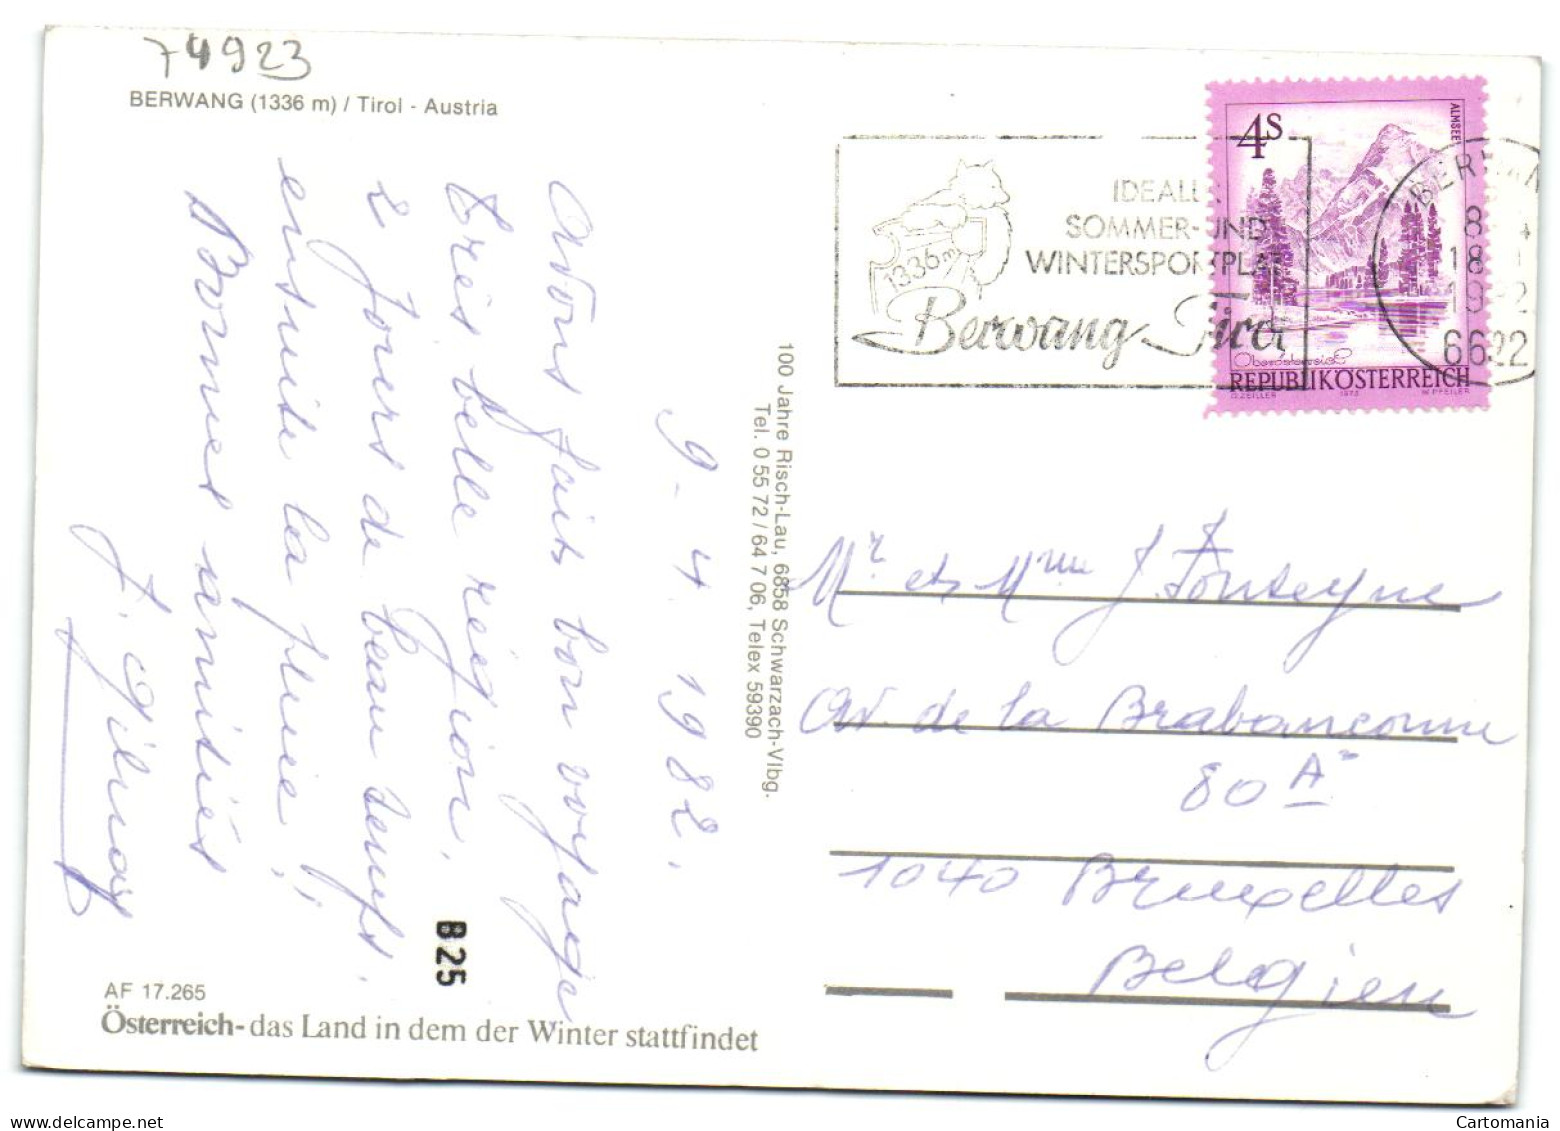 74923
BERWANG (1336 m) / Tirol - Austria
9-4 1982.
Avons fait bon voyage
très belle région,
2 jours de beau temps.
ensuite la pluie!!
Bonnes amitiés
J.
B 25
AF 17.265
Österreich-das Land in dem der Winter stattfindet
100 Jahre Risch-Lau, 6858 Schwarzach-Vlbg.
Tel. 0 55 72 / 64 7 06, Telex 59390
1336m
SOMMER-UND
WINTERSPORTPLATZ
Berwang Tirol
4S
ALMSEE
Oberösterreich
REPUBLIK ÖSTERREICH
O.ZEILLER 1973 W.PFEILER
BERWAN
6622
Mr et Mme J Fonteyne
Av. de la Brabançonne
80 A
1040 Bruxelles
Belgien
delcampe.net
Cartomania